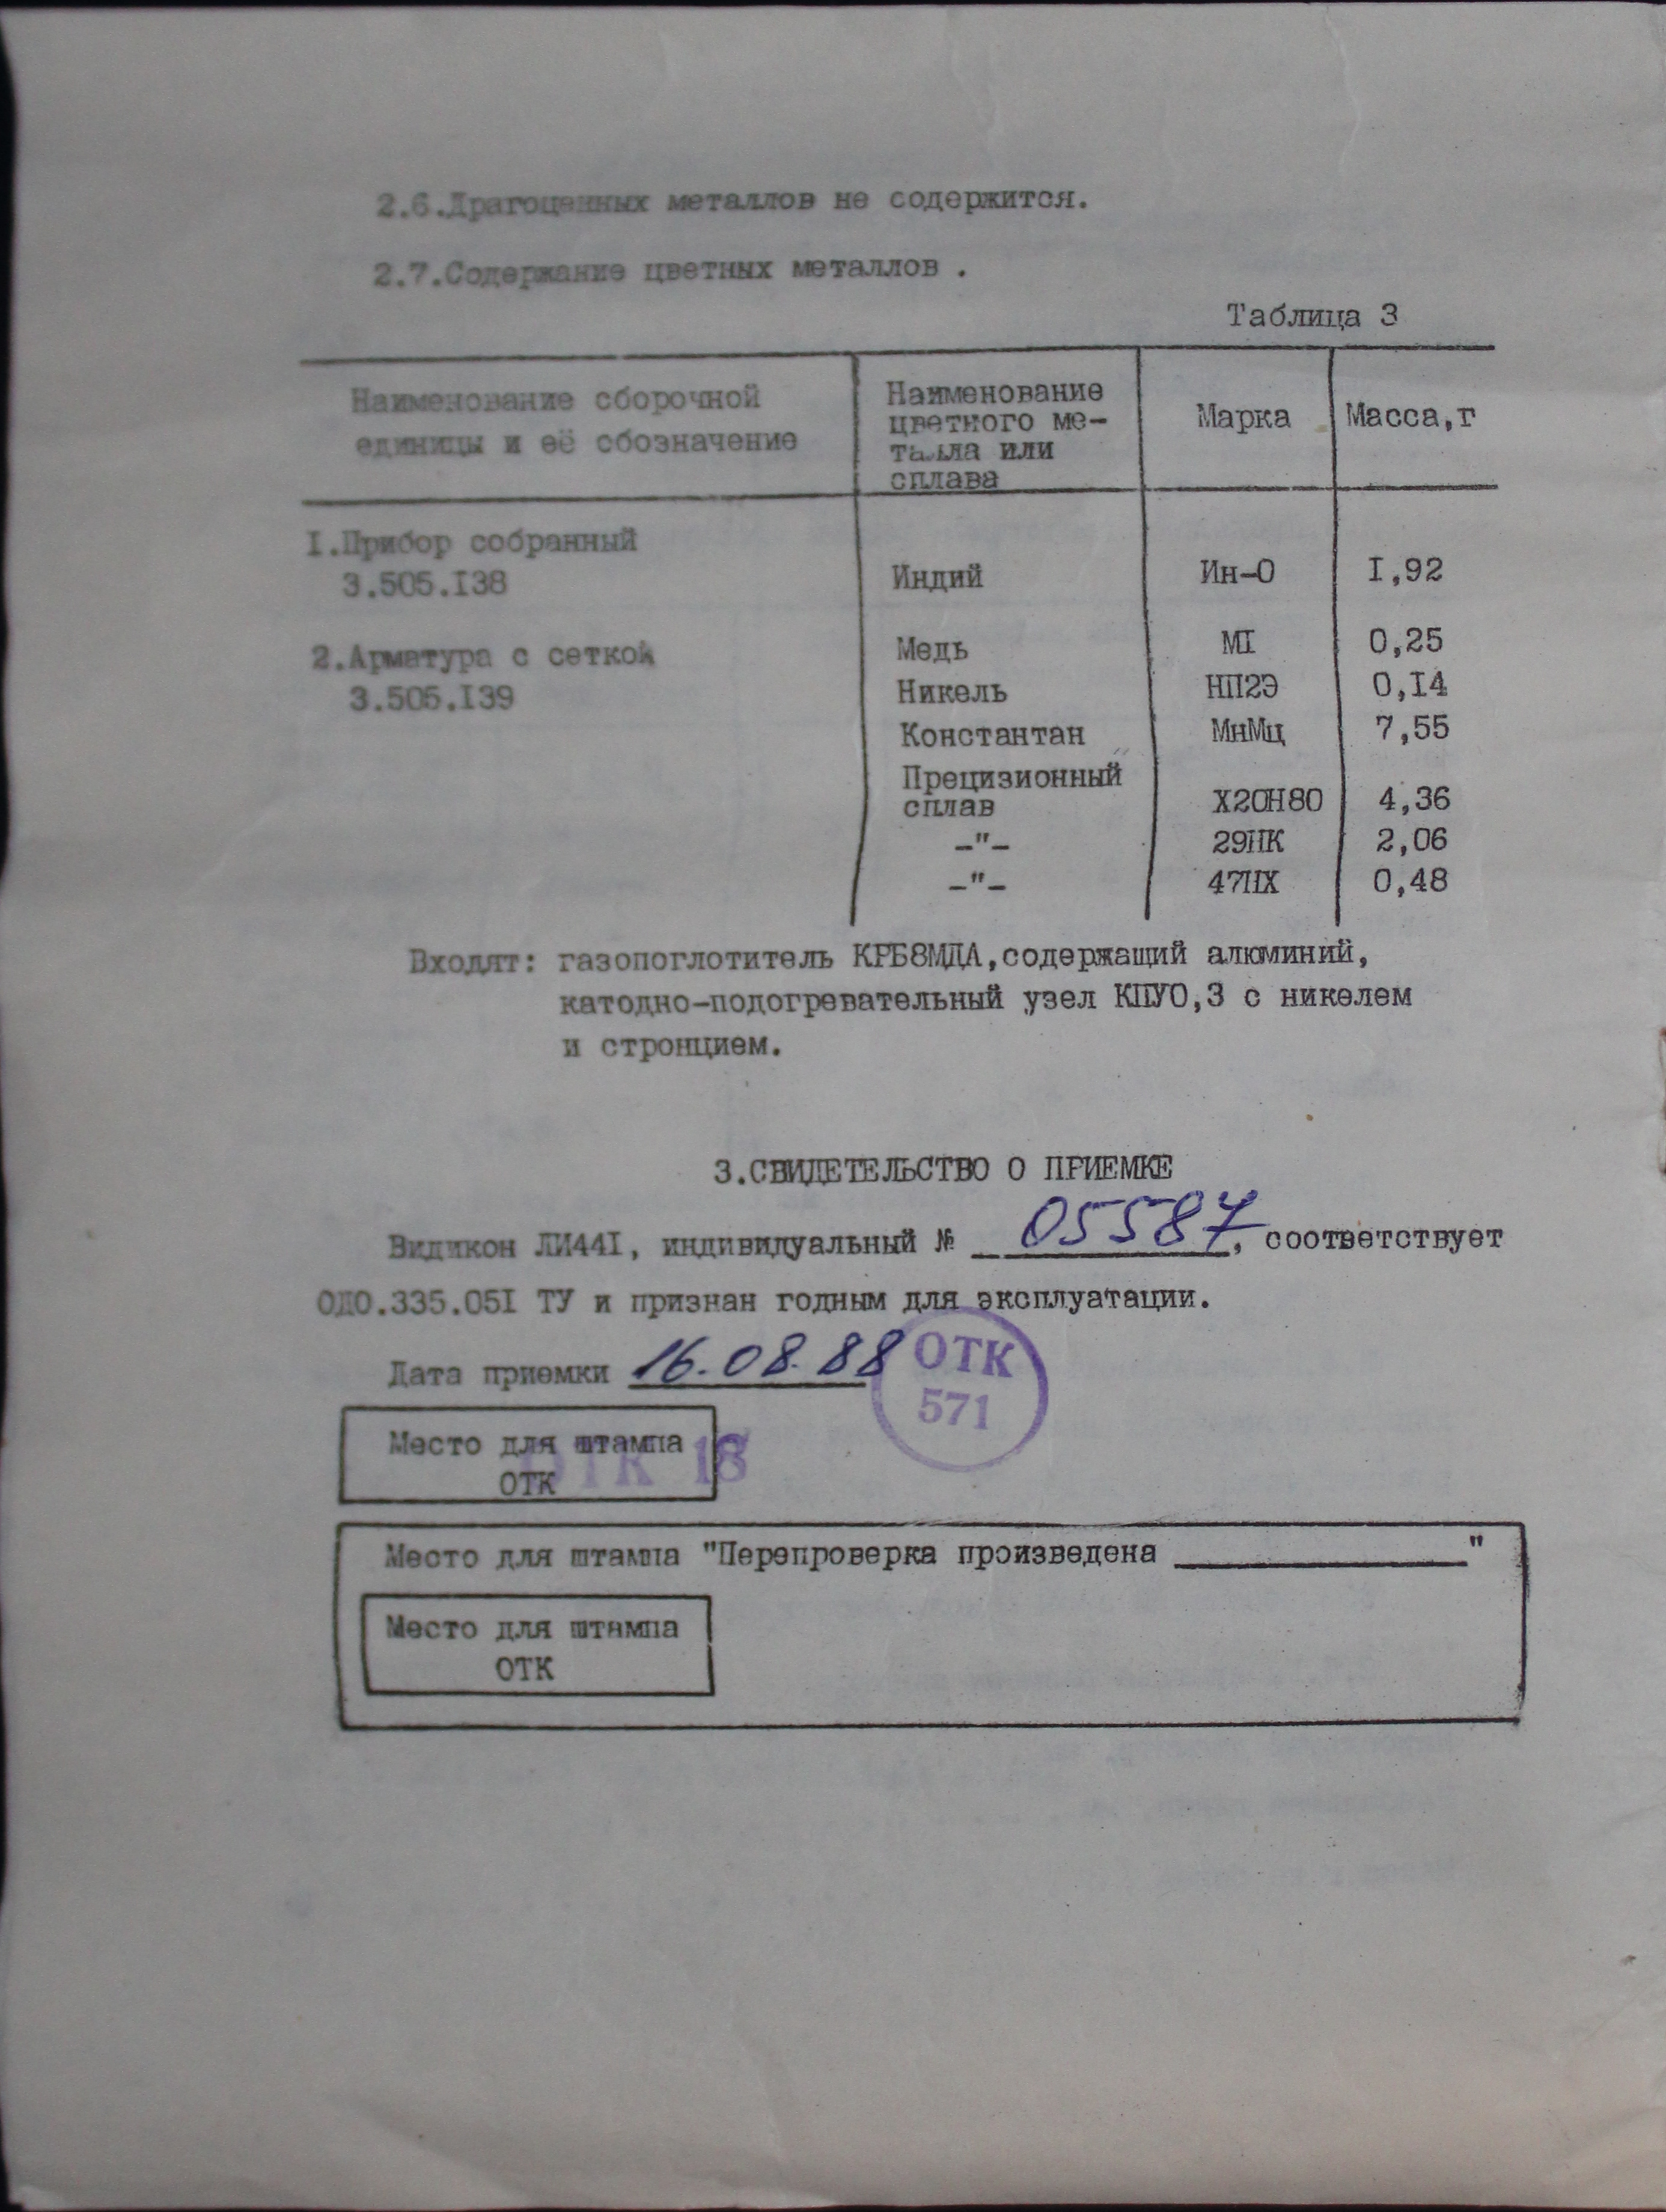 2.6.Драгоценных металлов не содержится.
2.7.Содержание цветных металлов .
Таблица 3
Наименование сборочной единицы и её обозначение
Наименование цветного ме-
талла или
сплава
Марка
Масса,г
I.Прибор собранный
3.505.I38
Индий Ин-0 I,92
2.Арматура с сеткой
3.505.I39
Медь МI 0,25
Никель НП2Э 0,I4
Константан МнМц 7,55
Прецизионный
сплав Х20Н80 4,36
–"– 29НК 2,06
–"– 47НХ 0,48
Входят: газопоглотитель КРБ8МДА,содержащий алюминий,
катодно-подогревательный узел КПУО,3 с никелем
и стронцием.
3.СВИДЕТЕЛЬСТВО О ПРИЕМКЕ
Видикон ЛИ44I, индивидуальный № 05587, соответствует
ОДО.335.05I ТУ и признан годным для эксплуатации.
Дата приемки 16.08.88
ОТК
571
Место для штампа
ОТК
ОТК 18
Место для штампа "Перепроверка произведена ________"
Место для штампа
ОТК